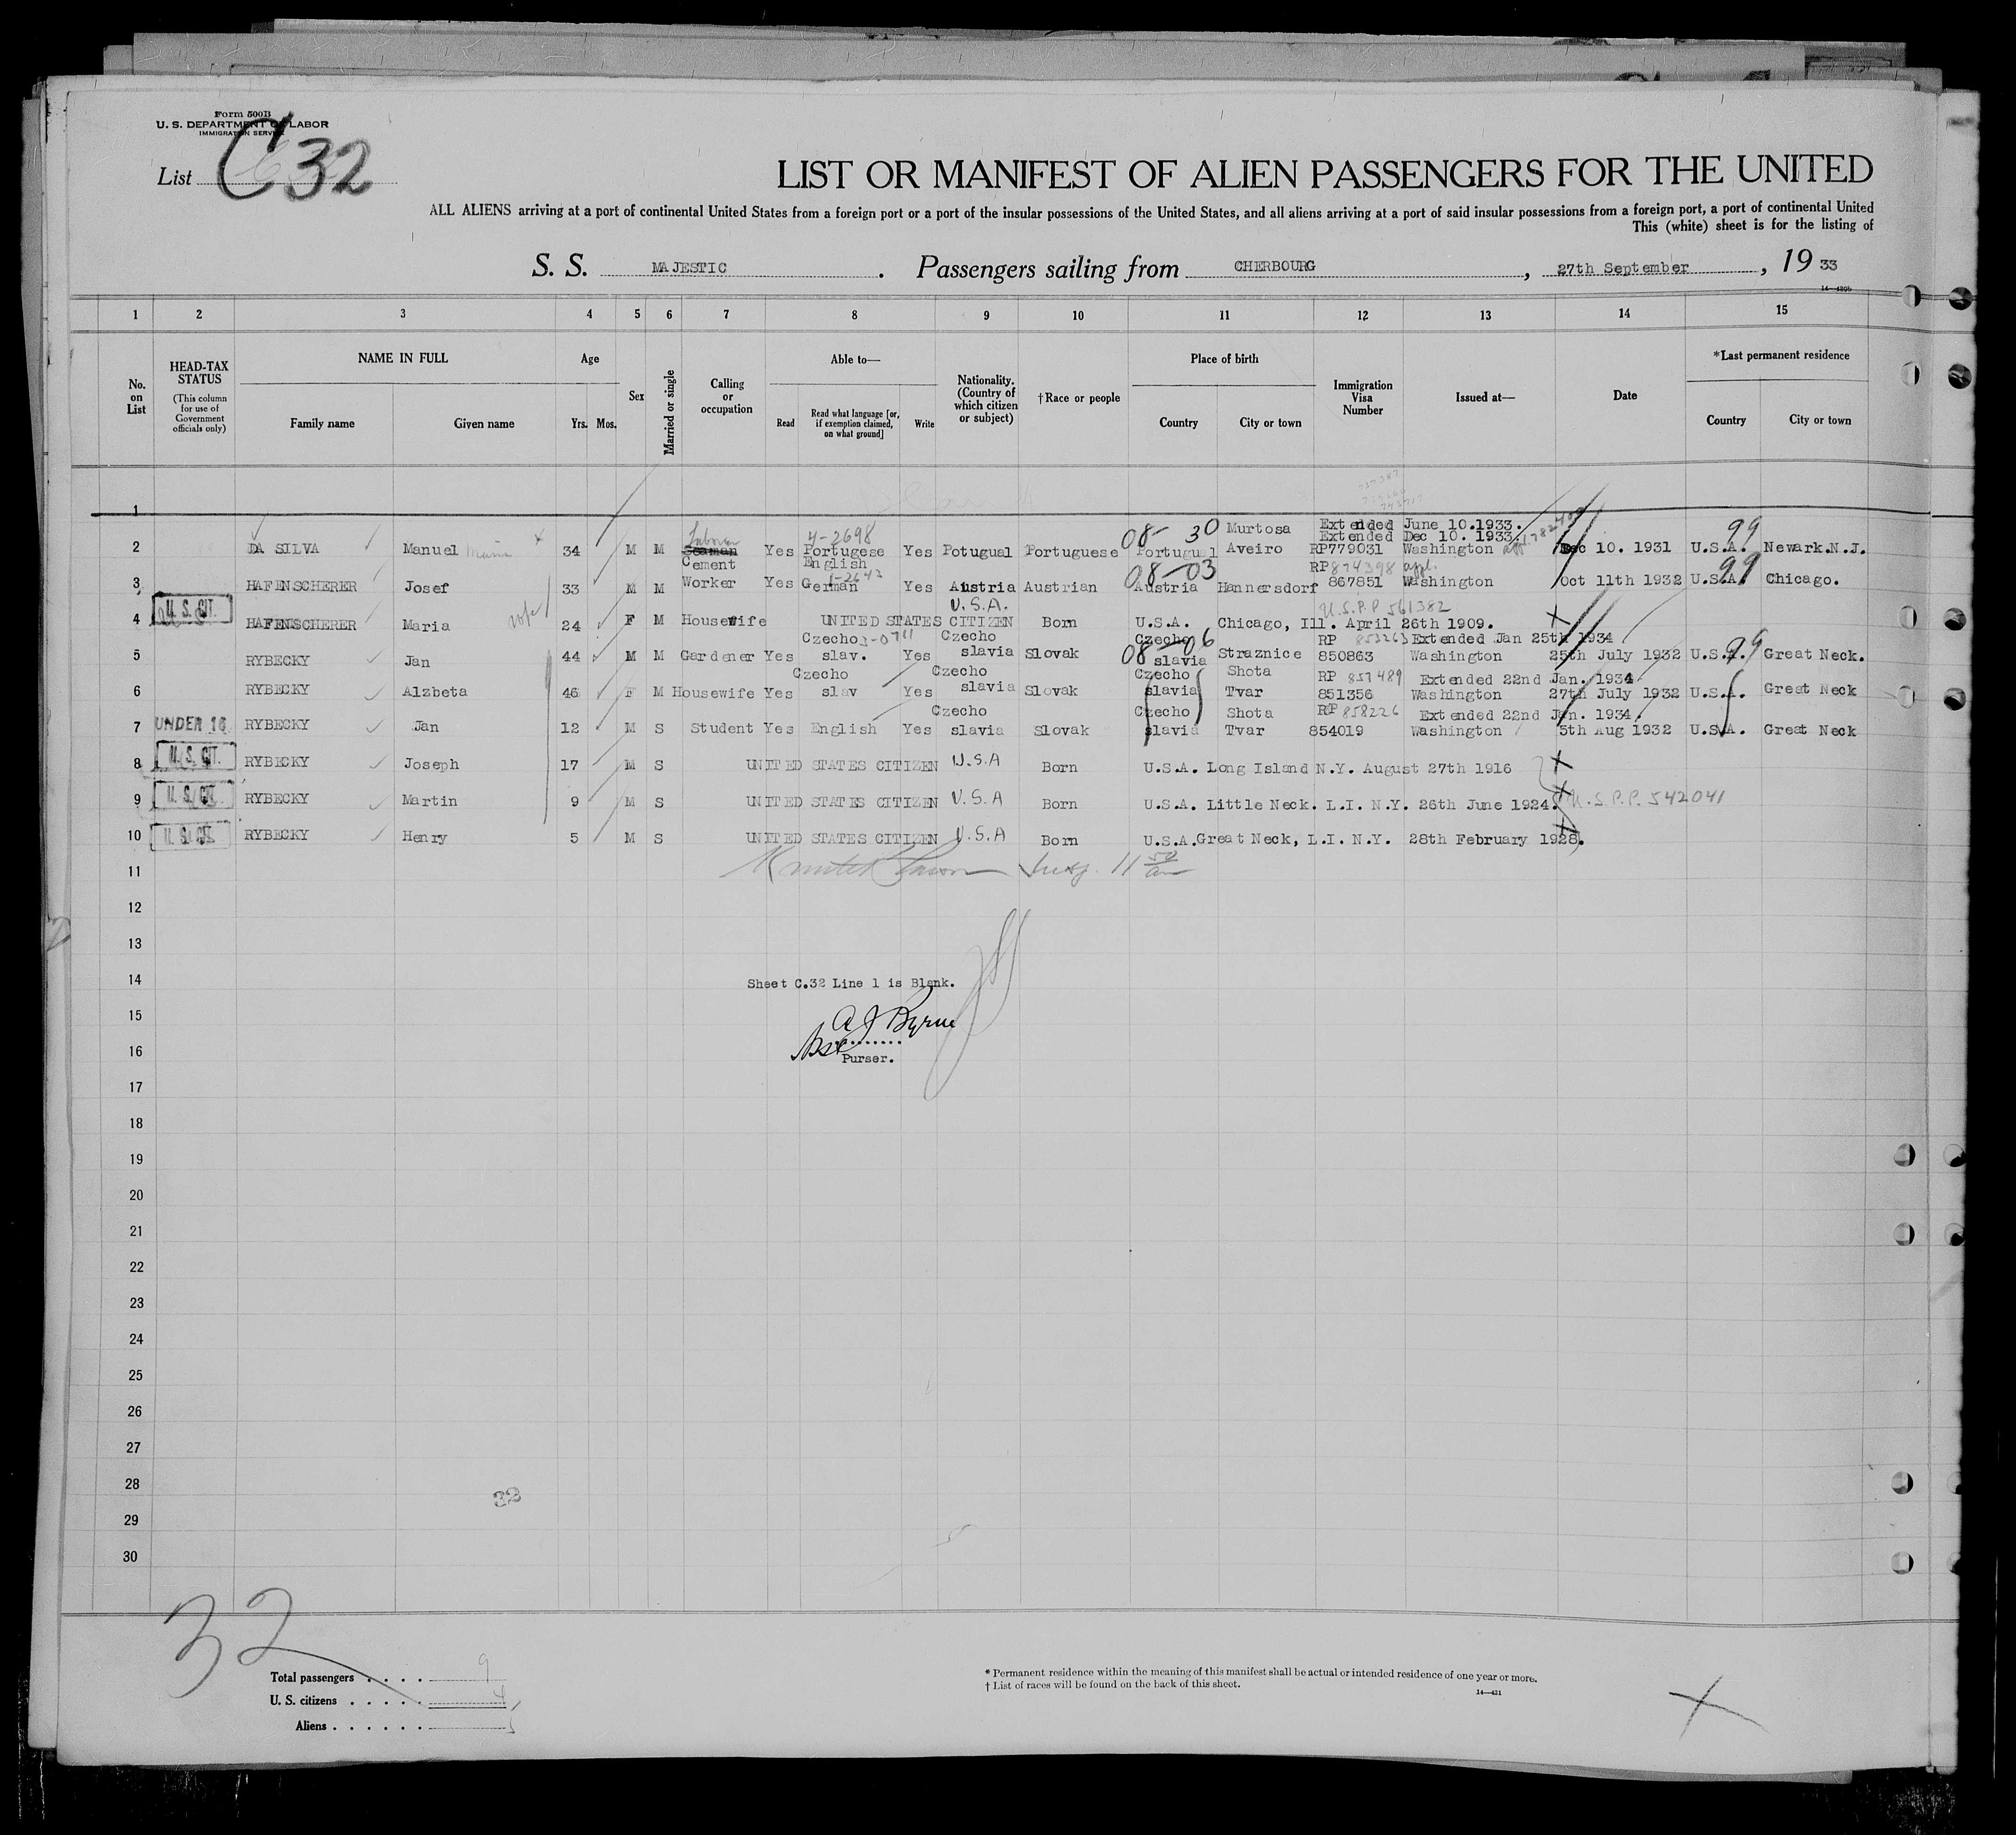 Form 500B
U. S. DEPARTMENT OF LABOR
IMMIGRATION SERVICE
List C32
LIST OR MANIFEST OF ALIEN PASSENGERS FOR THE UNITED
ALL ALIENS arriving at a port of continental United States from a foreign port or a port of the insular possessions of the United States, and all aliens arriving at a port of said insular possessions from a foreign port, a port of continental United
This (white) sheet is for the listing of
S. S. MAJESTIC. Passengers sailing from CHERBOURG, 27th September, 19 33
1 2 3 4 5 6 7 8 9 10 11 12 13 14 15
No. on List
HEAD-TAX STATUS (This column for use of Government officials only)
NAME IN FULL
Family name
Given name
Age
Yrs. Mos.
Sex
Married or single
Calling or occupation
Able to—
Read
Read what language [or, if exemption claimed, on what ground]
Write
Nationality. (Country of which citizen or subject)
†Race or people
Place of birth
Country
City or town
Immigration Visa Number
Issued at—
Date
*Last permanent residence
Country
City or town
1
Laborer 4-2698 08- 30 Murtosa Extended June 10.1933. 99
Extended Dec 10. 1933.
2 DA SILVA Manuel 34 M M Seaman Yes Portugese Yes Potugual Portuguese Portugual Aveiro RP779031 Washington Dec 10. 1931 U.S.A. Newark.N.J.
English
Cement 08-03 RP874398 appl. 99
3 HAFENSCHERER Josef 33 M M Worker Yes German Yes Austria Austrian Austria Hannersdorf 867851 Washington Oct 11th 1932 U.S.A. Chicago.
U.S.A. U.S.P.P 561382
4 U. S. CIT. HAFENSCHERER Maria wife 24 F M Housewife UNITED STATES CITIZEN Born U.S.A. Chicago, Ill. April 26th 1909. X
Czecho Czecho Czecho 08-06 RP 853263 Extended Jan 25th 1934
5 RYBECKY Jan 44 M M Gardener Yes slav. Yes slavia Slovak slavia Straznice 850863 Washington 25th July 1932 U.S.A. 99 Great Neck.
Czecho Czecho Czecho Shota RP 857489 Extended 22nd Jan. 1934
6 RYBECKY Alzbeta 46 F M Housewife Yes slav Yes slavia Slovak slavia Tvar 851356 Washington 27th July 1932 U.S.A. Great Neck
Czecho Czecho Shota RP 858226 Extended 22nd Jan. 1934.
7 UNDER 16 RYBECKY Jan 12 M S Student Yes English Yes slavia Slovak slavia Tvar 854019 Washington 5th Aug 1932 U.S.A. Great Neck
8 U. S. CIT. RYBECKY Joseph 17 M S UNITED STATES CITIZEN U.S.A Born U.S.A. Long Island N.Y. August 27th 1916 X
9 U. S. CIT. RYBECKY Martin 9 M S UNITED STATES CITIZEN U.S.A Born U.S.A. Little Neck. L.I. N.Y. 26th June 1924. X U.S.P.P. 542041
10 U. S. CIT. RYBECKY Henry 5 M S UNITED STATES CITIZEN U.S.A Born U.S.A.Great Neck, L.I. N.Y. 28th February 1928. X
11
12
13
14
Sheet C.32 Line 1 is Blank.
15
A J Byrne
16
Asst
Purser.
17
18
19
20
21
22
23
24
25
26
27
28
32
29
30
32
Total passengers . . . . 9
U. S. citizens . . . . . 4
Aliens . . . . . . 5
* Permanent residence within the meaning of this manifest shall be actual or intended residence of one year or more.
† List of races will be found on the back of this sheet.
14—431
X